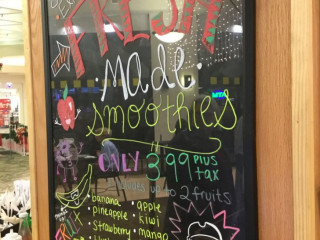 FRESH
made
smoothies
ONLY 3.99 plus tax
includes up to 2 fruits
• banana • apple
• pineapple • kiwi
• strawberry • mango